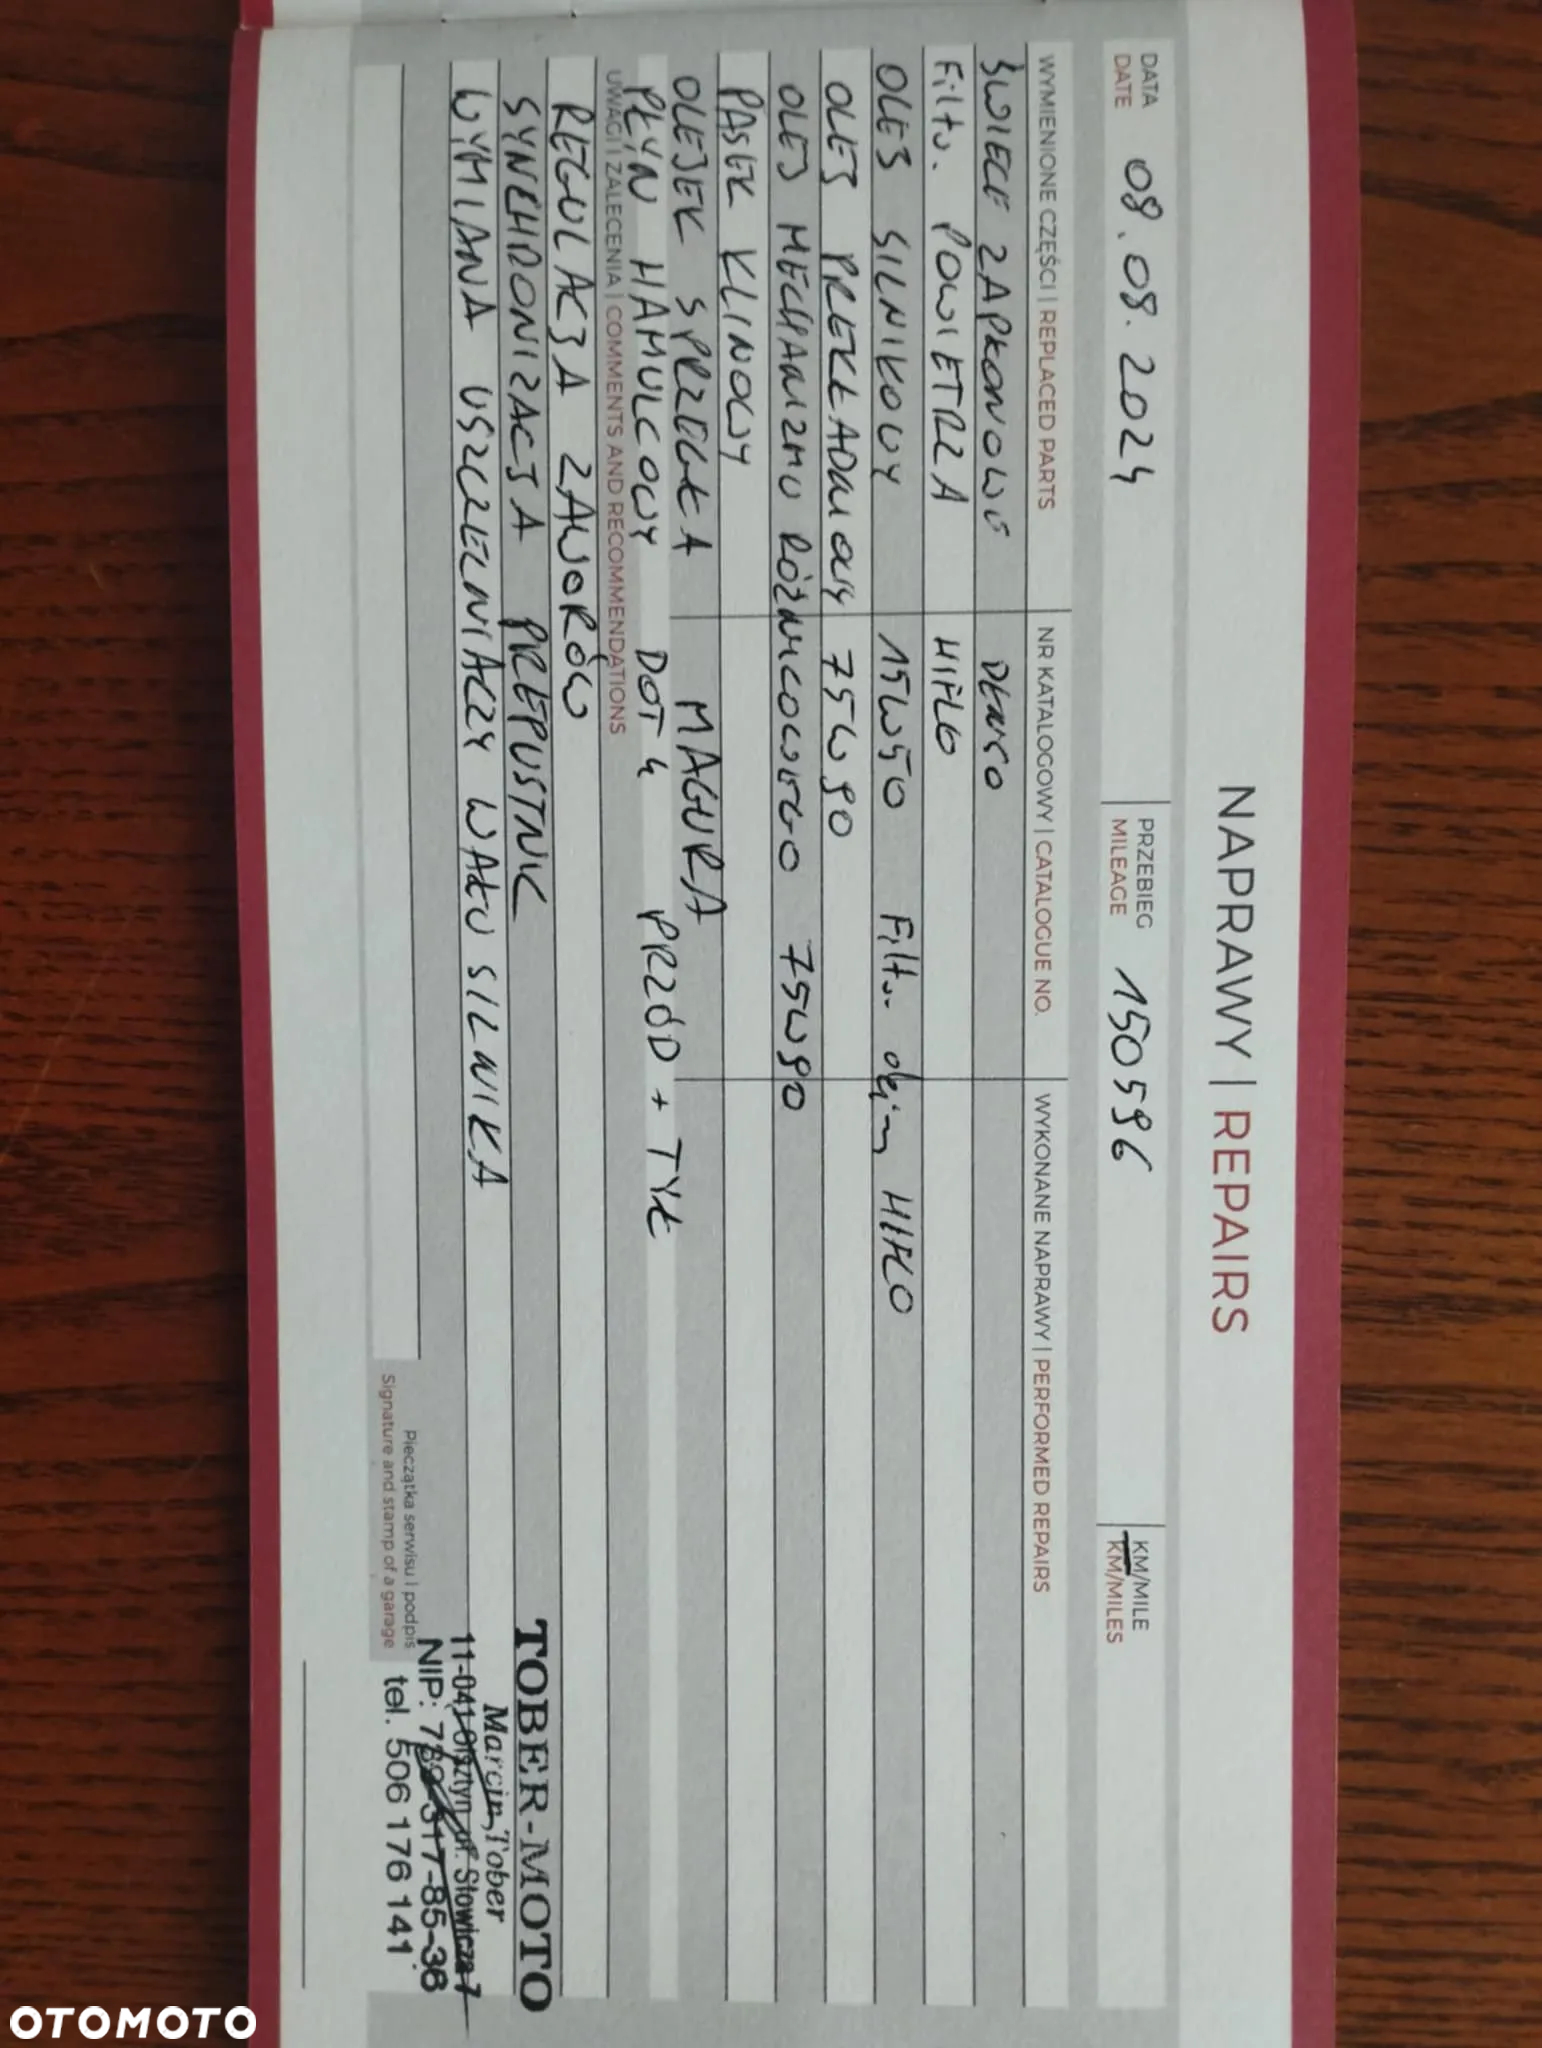 NAPRAWY | REPAIRS
DATA
DATE
08.08.2024
PRZEBIEG
MILEAGE
150596
KM/MILE
KM/MILES
WYMIENIONE CZĘŚCI | REPLACED PARTS
NR KATALOGOWY | CATALOGUE NO.
WYKONANE NAPRAWY | PERFORMED REPAIRS
ŚWIECE ZAPŁONOWE DENSO
Filtr. POWIETRZA HIFLO
OLEJ SILNIKOWY 15W50 Filtr. olejowy HIFLO
OLEJ PREKŁADNIOWY 75W90
OLEJ MECHANIZMU RÓŻNICOWEGO 75W90
PASEK KLINOWY
OLEJEK SPRZĘGŁA MAGURA
PŁYN HAMULCOWY DOT 4 PRZÓD + TYŁ
UWAGI I ZALECENIA | COMMENTS AND RECOMMENDATIONS
REGULACJA ZAWORÓW
SYNCHRONIZACJA PREPUSTNIC
WYMIANA USZCZELNIACZY WAŁU SILNIKA
TOBER-MOTO
Marcin Tober
11-041 Olsztyn, ul. Słowicza 7
NIP: 739-317-85-36
tel. 506 176 141
Pieczątka serwisu i podpis
Signature and stamp of a garage
OTOMOTO